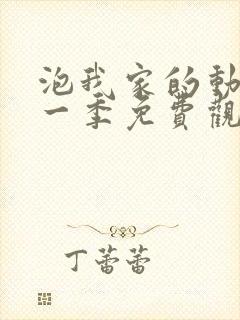 泡我家的動
一季免費觀
丁蕾蕾